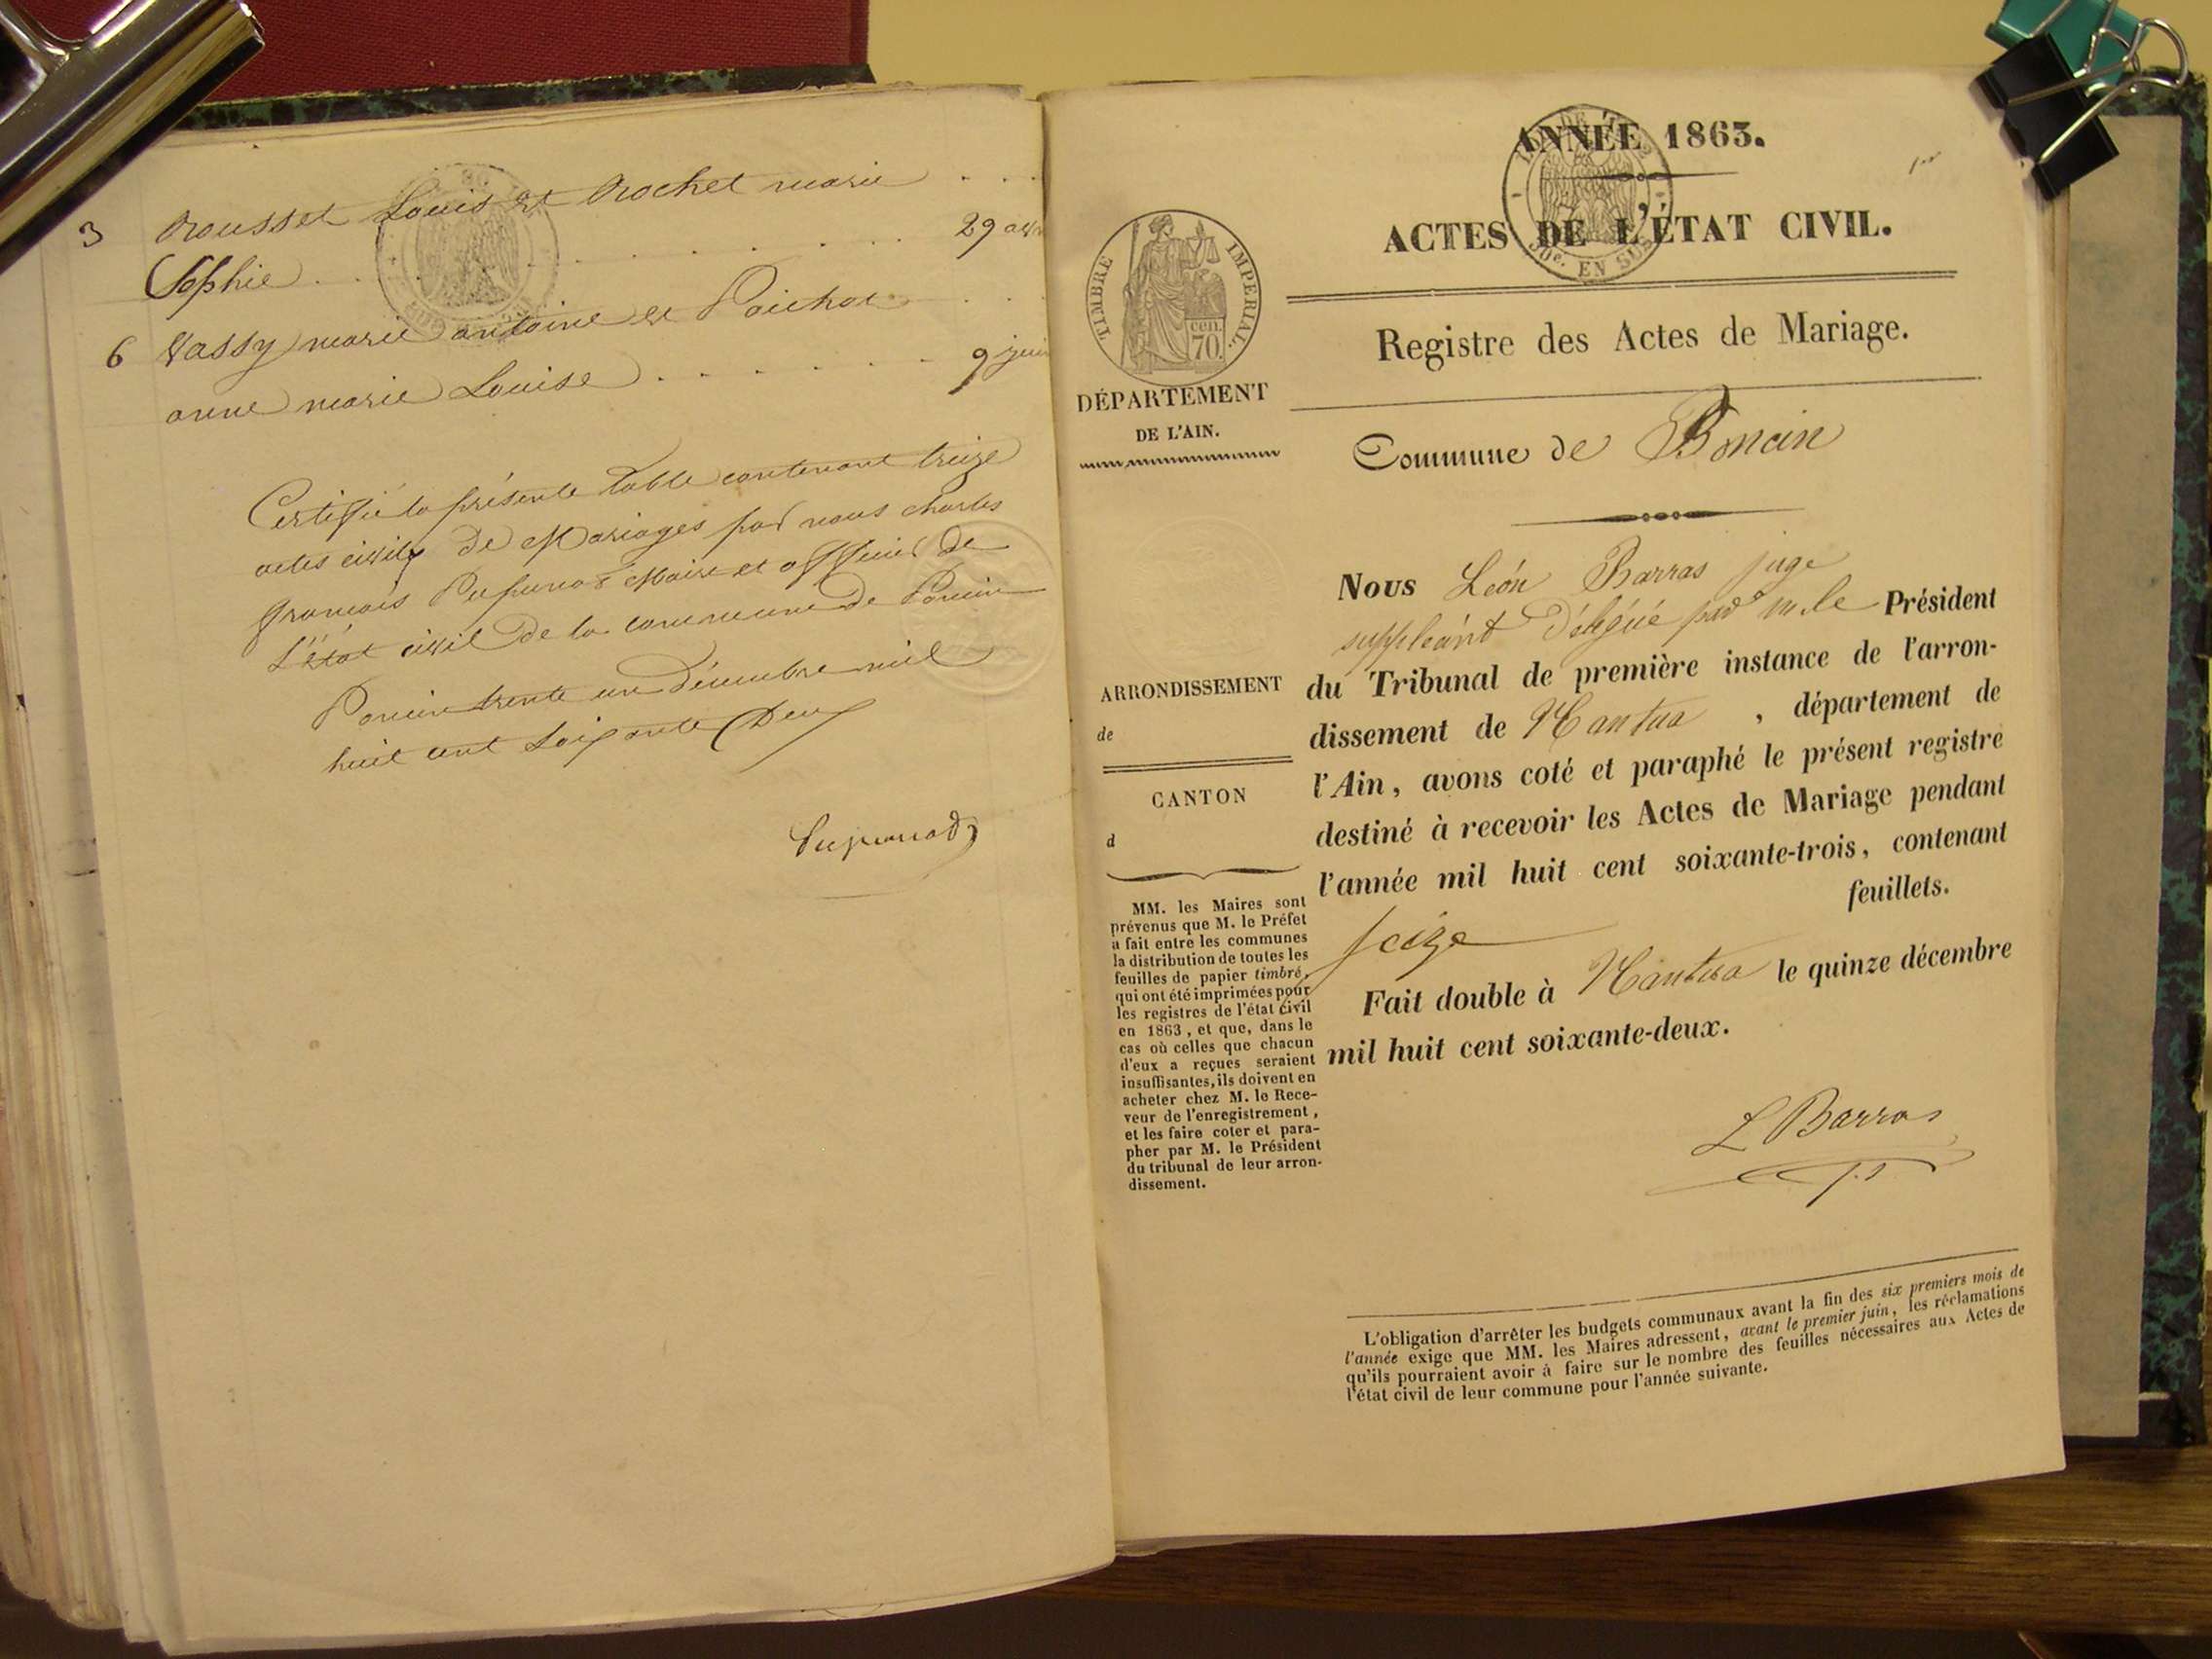 3 Rousset Louis et Rochet marie . . .
Sophie . . . . . . . . . . 29 avr
6 Vassy marie antoine et Poichot . . .
anne marie Louise . . . . . . . 9 juin
Certifié la présente table contenant treize
actes civils de Mariages par nous charles
françois Pupunat Maire et officier de
L'état civil de la commune de Poncin
Poncin trente un décembre mil
huit cent soixante Deux
Pupunat
ANNÉE 1863.
ACTES DE L'ÉTAT CIVIL.
TIMBRE IMPERIAL.
cen. 70.
50c. EN SUS
Registre des Actes de Mariage.
DÉPARTEMENT
DE L'AIN.
Commune de Poncin
Nous Léon Barras juge
suppléant délégué par m. le Président
du Tribunal de première instance de l'arron-
dissement de Nantua , département de
l'Ain, avons coté et paraphé le présent registre
destiné à recevoir les Actes de Mariage pendant
l'année mil huit cent soixante-trois, contenant
seize feuillets.
Fait double à Nantua le quinze décembre
mil huit cent soixante-deux.
L Barras
ARRONDISSEMENT
de
CANTON
d
MM. les Maires sont
prévenus que M. le Préfet
a fait entre les communes
la distribution de toutes les
feuilles de papier timbré,
qui ont été imprimées pour
les registres de l'état civil
en 1863, et que, dans le
cas où celles que chacun
d'eux a reçues seraient
insuffisantes, ils doivent en
acheter chez M. le Rece-
veur de l'enregistrement,
et les faire coter et para-
pher par M. le Président
du tribunal de leur arron-
dissement.
L'obligation d'arrêter les budgets communaux avant la fin des six premiers mois de
l'année exige que MM. les Maires adressent, avant le premier juin, les réclamations
qu'ils pourraient avoir à faire sur le nombre des feuilles nécessaires aux Actes de
l'état civil de leur commune pour l'année suivante.